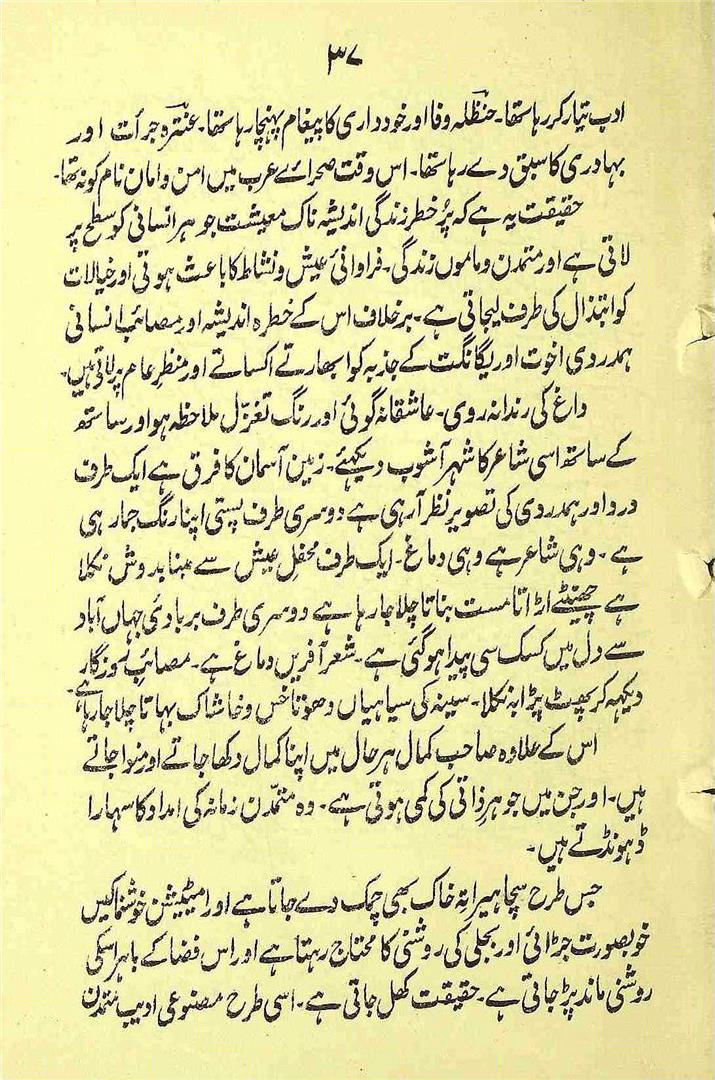 ۳۷
ادب تیار کر رہا تھا۔ حنظلہ وفا اور خودداری کا پیغام پہنچا رہا تھا۔ عنترہ جرأت اور
بہادری کا سبق دے رہا تھا۔ اس وقت صحرائے عرب میں امن و امان نام کو نہ تھا۔
حقیقت یہ ہے کہ پُر خطر زندگی اندیشہ ناک معیشت جوہر انسانی کو سطح پر
لاتی ہے اور متمدن و ماموں زندگی۔ فراوانیٔ عیش و نشاط کا باعث ہوتی اور خیالات
کو ابتذال کی طرف لیجاتی ہے۔ برخلاف اس کے خطرہ اندیشہ اور مصائب انسانی
ہمدردی اخوت اور یگانگت کے جذبہ کو ابھارتے اکساتے اور منظرِ عام پر لاتی ہیں۔
داغ کی رندانہ روی۔ عاشقانہ گوئی اور رنگ تغزّل ملاحظہ ہو اور ساتھ
کے ساتھ اسی شاعر کا شہر آشوب دیکھئے۔ زمین آسمان کا فرق ہے ایک طرف
درد اور ہمدردی کی تصویر نظر آ رہی ہے دوسری طرف پستی اپنا رنگ جما رہی
ہے۔ وہی شاعر ہے وہی دماغ۔ ایک طرف محفلِ عیش سے مینا بدوش نکلا
ہے چھینٹے اڑاتا مست بناتا چلا جا رہا ہے دوسری طرف بربادیٔ جہاں آباد
سے دل میں کسک سی پیدا ہو گئی ہے۔ شعر آفریں دماغ ہے۔ مصائب روزگار
دیکھ کر پھٹ پڑا بہ نکلا۔ سینہ کی سیاہیاں دھوتا خس و خاشاک بہاتا چلا جا رہا ہے۔
اس کے علاوہ صاحب کمال ہر حال میں اپنا کمال دکھا جاتے اور منوا جاتے
ہیں۔ اور جن میں جوہرِ ذاتی کی کمی ہوتی ہے۔ وہ متمّدن زمانہ کی امداد کا سہارا
ڈہونڈتے ہیں۔
جس طرح سچا ہیرا تہِ خاک بھی چمک دے جاتا ہے اور امیٹیشن خوشنما کیس
خوبصورت جڑائی اور بجلی کی روشنی کا محتاج رہتا ہے اور اس فضا کے باہر اسکی
روشنی ماند پڑ جاتی ہے۔ حقیقت کھل جاتی ہے۔ اسی طرح مصنوعی ادیب متمدن